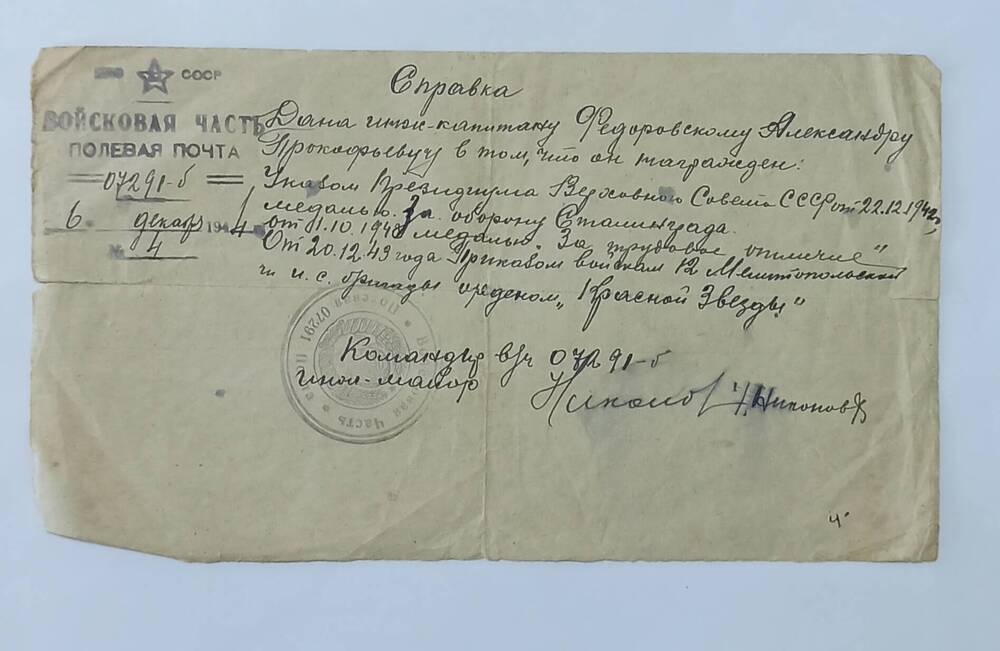 СССР
ВОЙСКОВАЯ ЧАСТЬ
ПОЛЕВАЯ ПОЧТА
07291-б
6 декабря 1944
№ 4
Справка
Дана инж-капитану Федоровскому Александру
Прокофьевичу в том, что он награжден:
Указом Президиума Верховного Совета СССР от 22.12.1942г.
медалью „За оборону Сталинграда.
от 11.10.1943 медалью „За трудовое отличие"
От 20.12.43 года Приказом войскам 12 Мелитопольской
ш. и. с. бригады орденом „Красной Звезды"
Командир в/ч 07291-б
инж-майор
Никонов
/Никонов/
Войсковая Часть
Полевая 07291
ч